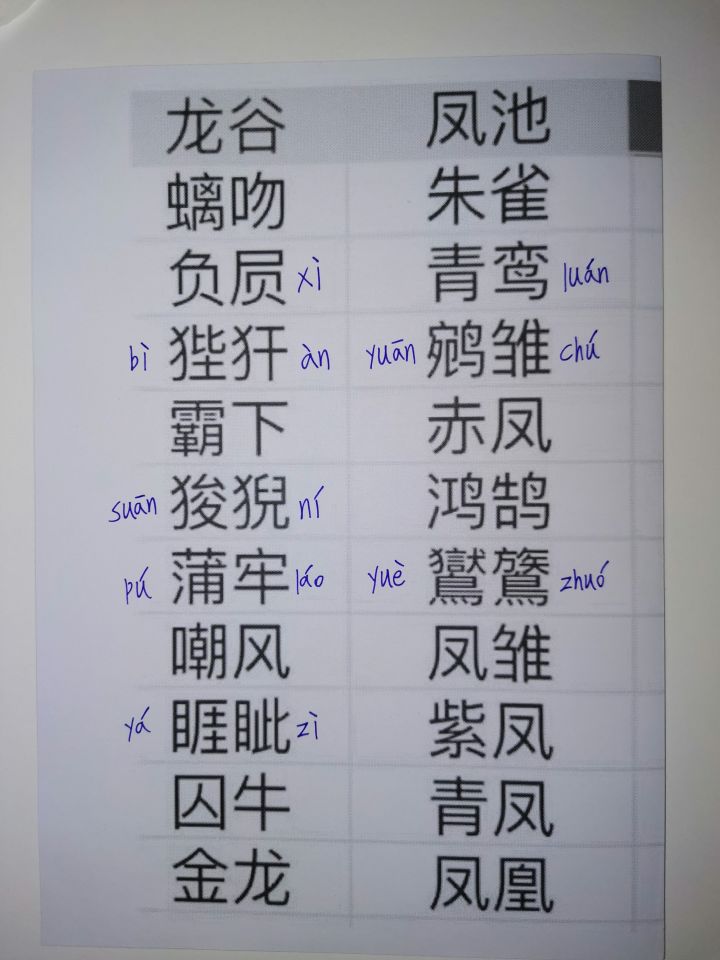 龙谷 凤池
螭吻 朱雀
负屃 xì 青鸾 luán
bì 狴犴 àn yuān 鹓雏 chú
霸下 赤凤
suān 狻猊 ní 鸿鹄
pú 蒲牢 láo yuè 鸑鷟 zhuó
嘲风 凤雏
yá 睚眦 zì 紫凤
囚牛 青凤
金龙 凤凰